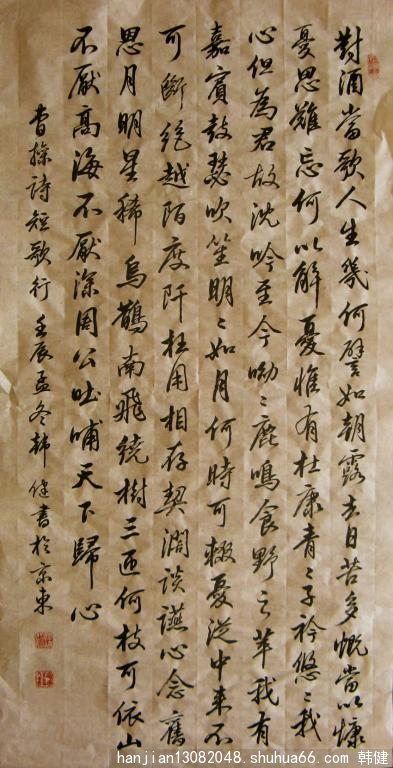 對酒當歌人生幾何譬如朝露去日苦多慨當以慷
憂思難忘何以解憂惟有杜康青々子衿悠々我
心但為君故沈吟至今呦々鹿鳴食野之苹我有
嘉賓鼓瑟吹笙明々如月何時可輟憂從中來不
可斷絕越陌度阡枉用相存契闊談讌心念舊
恩月明星稀烏鵲南飛繞樹三匝何枝可依山
不厭高海不厭深周公吐哺天下歸心
曹操詩短歌行 壬辰孟冬韓健書於京東
hanjian13082048.shuhua66.com 韩健